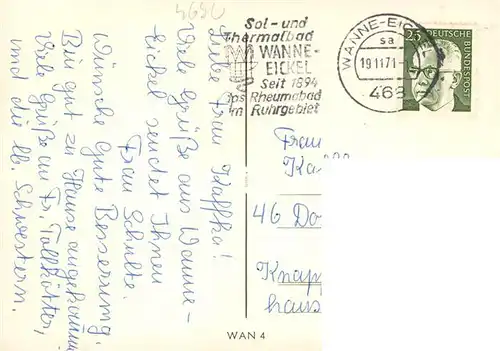 4680
Sol- und
Thermalbad
WANNE-
EICKEL
Seit 1894
das Rheumabad
im Ruhrgebiet
WANNE-EICKEL
sa
19.11.71
468
25
DEUTSCHE
BUNDESPOST
Liebe Frau Kaffka!
Viel Grüße aus Wanne-
Eickel sendet Ihnen
Frau Schulte.
Wünsche Gute Besserung.
Bin gut zu Hause angekommen
Viele Grüße an Fr. Tallkötter,
und die lb. Schwestern.
Frau
Ka
46 Do
Knap
haus
WAN 4